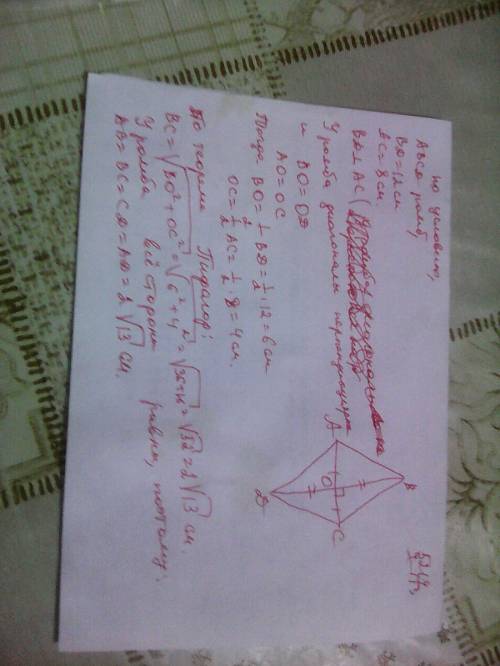 по условию,
ABCD ромб,
BD=12см
AC=8см
BD⊥AC (
У ромба диагонали перпендикулярн
и BO=OD
AO=OC
Тогда BO=1/2 BD=1/2·12=6см
OC=1/2 AC=1/2·8=4см.
По теореме Пифагор:
BC=√BO²+OC²=√6²+4²=√36+16=√52=2√13 см.
У ромба все стороны равны, поэтому:
AB=BC=CD=AD=2√13 см.
A
B
O
C
D